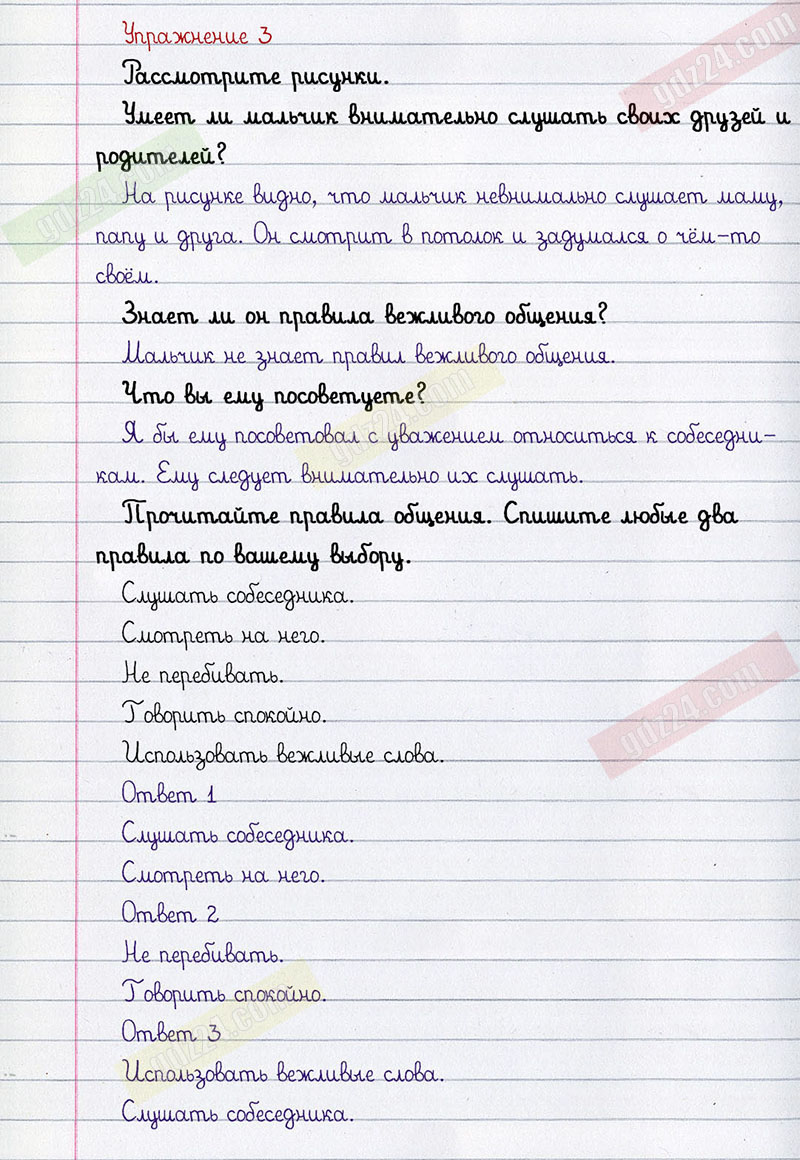 Упражнение 3
Рассмотрите рисунки.
Умеет ли мальчик внимательно слушать своих друзей и
родителей?
На рисунке видно, что мальчик невнимально слушает маму,
папу и друга. Он смотрит в потолок и задумался о чём-то
своём.
Знает ли он правила вежливого общения?
Мальчик не знает правил вежливого общения.
Что вы ему посоветуете?
Я бы ему посоветовал с уважением относиться к собеседни-
кам. Ему следует внимательно их слушать.
Прочитайте правила общения. Спишите любые два
правила по вашему выбору.
Слушать собеседника.
Смотреть на него.
Не перебивать.
Говорить спокойно.
Использовать вежливые слова.
Ответ 1
Слушать собеседника.
Смотреть на него.
Ответ 2
Не перебивать.
Говорить спокойно.
Ответ 3
Использовать вежливые слова.
Слушать собеседника.
gdz24.com
gdz24.com
gdz24.com
gdz24.com
gdz24.com